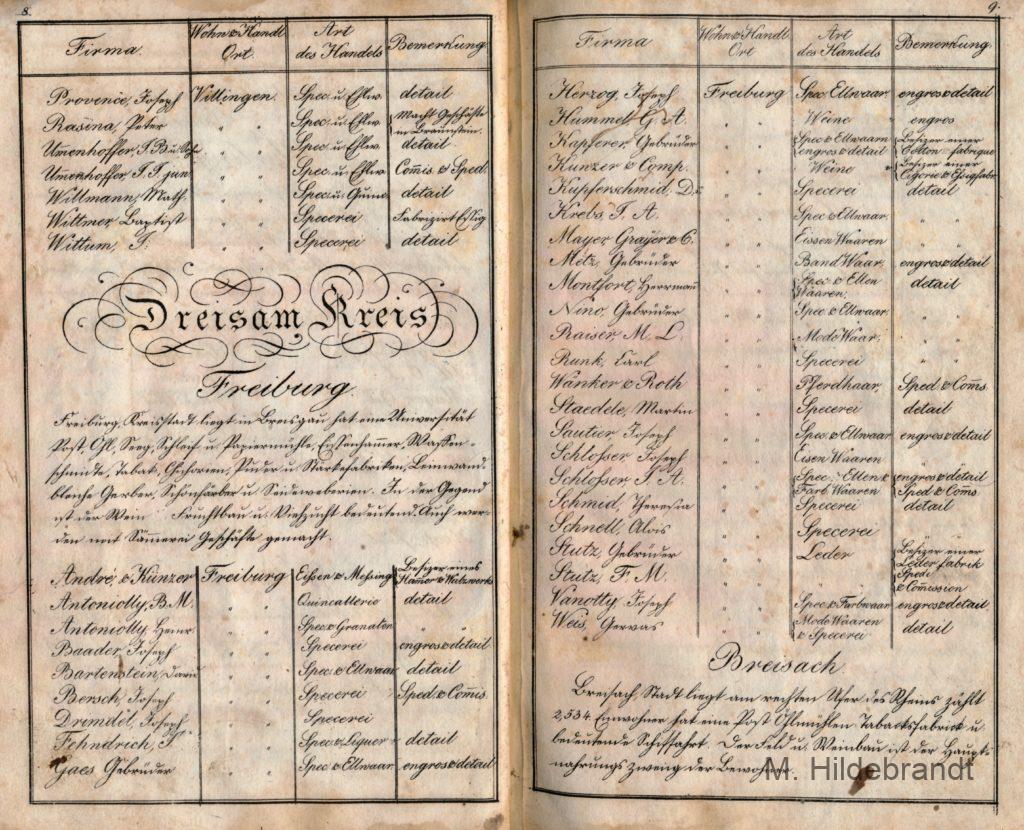 8.
Firma. Wohn & Handl Ort. Art des Handels Bemerkung.
Provence, Joseph Villingen. Spec. u. Ellw. detail
Rasina, Peter " " Spec. u. Ellw. Macht Geschäfte in Braunstein.
Umenhoffer, J. B. u. Sohn " " Spec. u. Ellw. detail
Umenhoffer, J. J. jun. " " Spec. u. Ellw. Comis. & Sped.
Willmann, Math. " " detail
Wittmer, Baptist " " Specerei Fabrizirt Essig
Wittum, J. " " Specerei detail
Dreisam Kreis
Freiburg.
Freiburg, Kreisstadt liegt in Breisgau, hat eine Universität
Post, Öhl, Seeg, Schleif u. Papiermühle, Eissenhammer, Waffen-
schmidte, Tabak, Chichorien, Puder u. Stärkefabriken, Leinwand-
bleiche Gerber, Schönfärber u. Seidewebereien. In der Gegend
ist der Wein Fruchtbau u. Viehzucht bedeutend. Auch wer-
den mit Sämerei Geschäfte gemacht.
André, & Künzer Freiburg Eissen & Messing Besitzer eines Hamer & Walzwerks
Antoniotty, B. M. " " Quincallerie detail
Antoniotty, Heinr. " " Spec. & Granaten "
Baader, Joseph " " Specerei engros & detail
Bartenstein, David " " Spec. & Ellwaar detail
Bersch, Joseph " " Specerei Sped. & Comis.
Dremdel, Joseph " " Specerei
Fehndrich, J. " " Spec. & Liquer detail
Gaes Gebrüder " " Spec. & Ellwaar engros & detail
9.
Firma Wohn & Handl Ort Art des Handels Bemerkung.
Herzog, Joseph Freiburg Spec. Ellwaar. engros & detail
Hummel G. A. " " Weine " engros
Kapferer, Gebrüder " " Spec & Ellwaarn engros & detail Besizer einer Cotton-fabrique
Kunzer & Comp. " " Weine " Besizer einer Cigorie & Essigfabr.
Kupferschmid, D. " " Specerei detail
Krebs J. A. " " Spec & Ellwaar. "
Mayer Grayer & C. " " Eissen Waaren " "
Metz, Gebrüder " " Band Waar. engros & detail
Montfort, Herrmann " " Spec. & Ellen Waaren. detail
Nino, Gebrüder " " Spec. & Ellwaar. "
Raiser, M. L. " " Mode Waar. "
Runk, Carl " " Specerei " "
Wänker & Roth " " Pferdhaar, Sped & Coms.
Staedele, Martin " " Specerei detail
Sautier Joseph " " Spec. & Ellwaar engros & detail
Schlosser Joseph " " Eisen Waaren " "
Schlosser J. A. " " Spec., Ellen & Farb Waaren engros & detail Sped & Coms.
Schmid, Theresia " " Specerei detail
Schnell Alois " " Specerei
Stutz, Gebrüder " " Leder Besizer einer Leder fabrik
Stutz, F. M. " " Spedi & Comission
Vanotty, Joseph " " Spec. & Farbwaar engros & detail
Weis, Gervas " " Mode Waaren & Specerei detail
Breisach
Breisach, Stadt liegt am rechten Ufer des Rheins zählt
2,534 Einwohner hat eine Post Öhlmühlen Tabacksfabrick u.
bedeutende Schiffahrt. Der Feld u. Weinbau ist der Haupt-
nahrungs zweig der Bewohner.
M. Hildebrandt